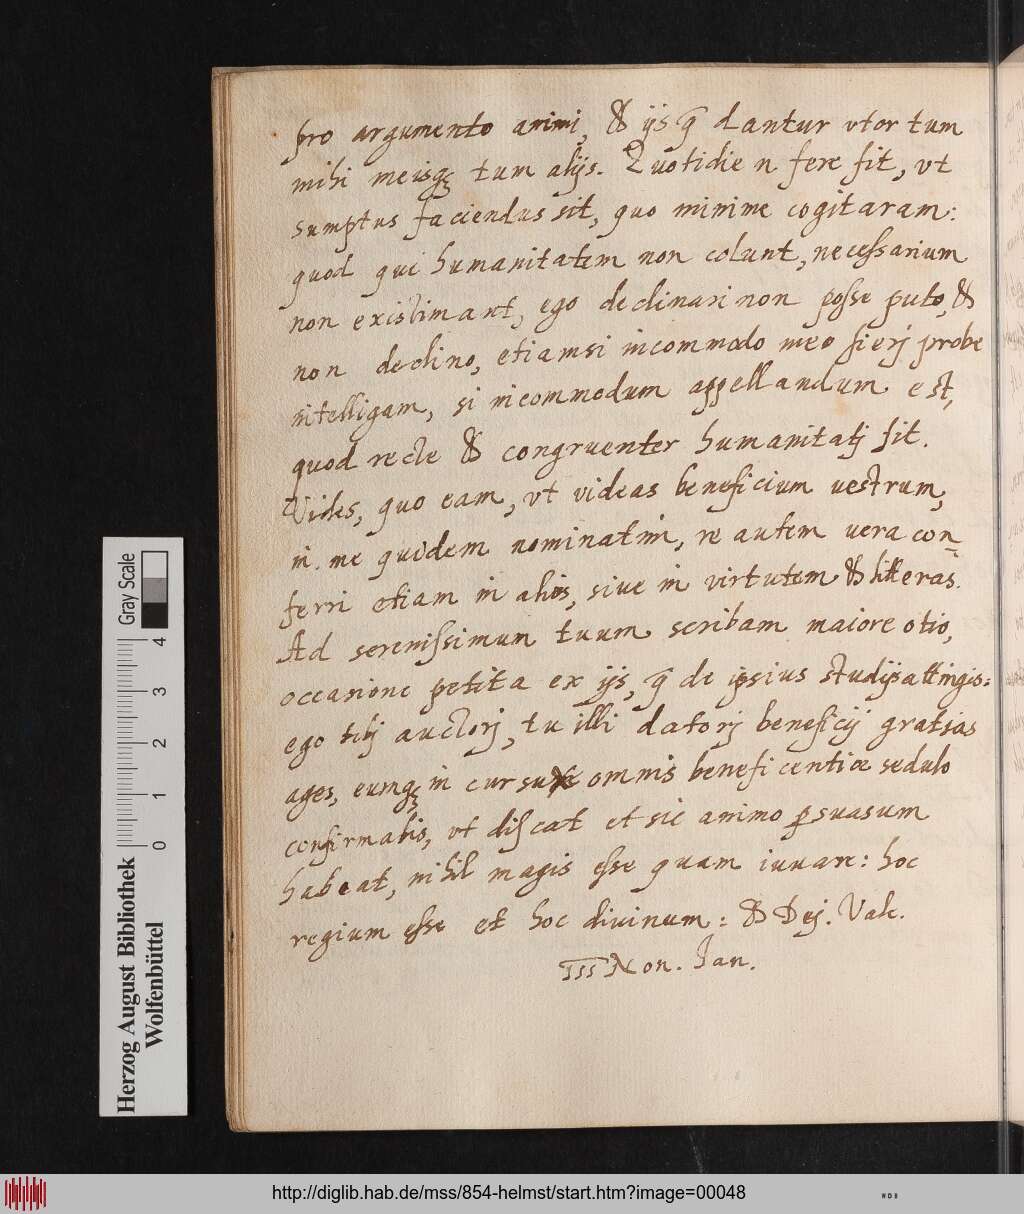 pro argumento animi, & ijs q̃ dantur vtor tum
mihi meisqꝫ tum alijs. Quotidie n fere fit, vt
sumptus faciendus sit, quo minime cogitaram:
quod qui humanitatem non colunt, necessarium
non existimant, ego declinari non posse puto, &
non declino, etiamsi incommodo meo fierj probe
intelligam, si incommodum appellandum est,
quod recte & congruenter humanitatj fit.
Vides, quo eam, vt videas beneficium uestrum,
in me quidem nominatim, re autem uera con-
ferri etiam in alios, siue in virtutem & litteras.
Ad serenissimum tuum scribam maiore otio,
occasione petita ex ijs, q̃ de ipsius studijs attingis:
ego tibj auctorj, tu illi datorj beneficij gratias
ages, eumqꝫ in cursu omnis beneficentiæ sedulo
confirmabis, vt discat et sic animo ꝑsuasum
habeat, nihil magis esse quam iuuare: hoc
regium esse et hoc diuinum: & Dej. Vale.
III Non. Jan.
Gray Scale
4
3
2
1
0
Herzog August Bibliothek
Wolfenbüttel
http://diglib.hab.de/mss/854-helmst/start.htm?image=00048
WDB